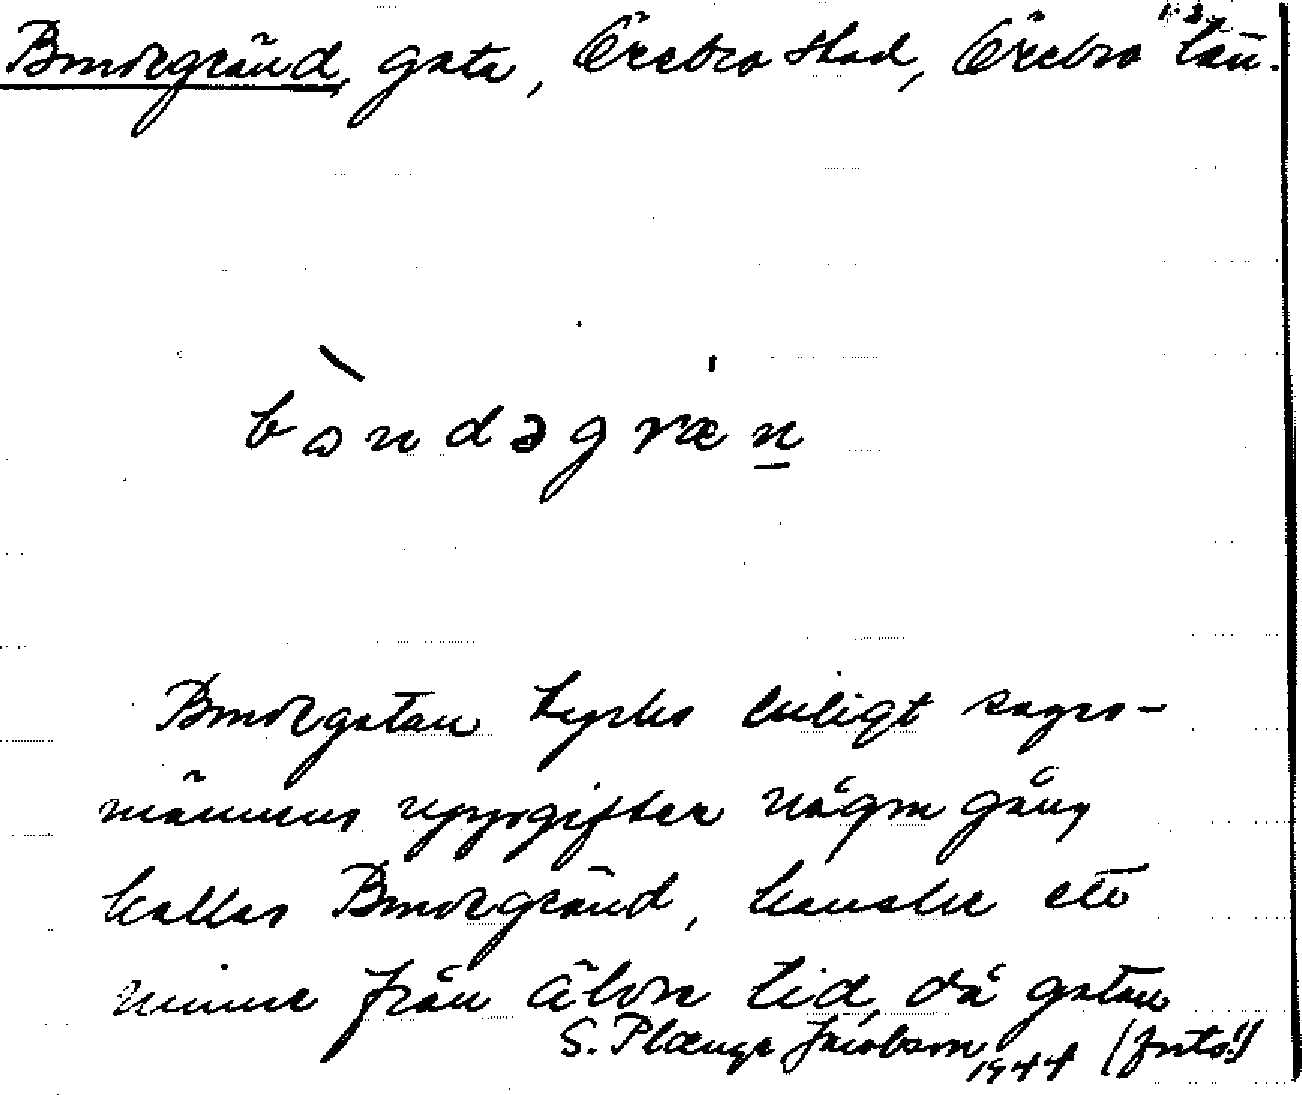 Bondegränd, gata, Örebro stad, Örebro län.
bòndəgræn
Bondegatan tycks enligt sages-
männens uppgifter någon gång
kallas Bondegränd, kanske ett
minne från äldre tid, då gatan
S. Plænge Jacobson 1944 (forts.)